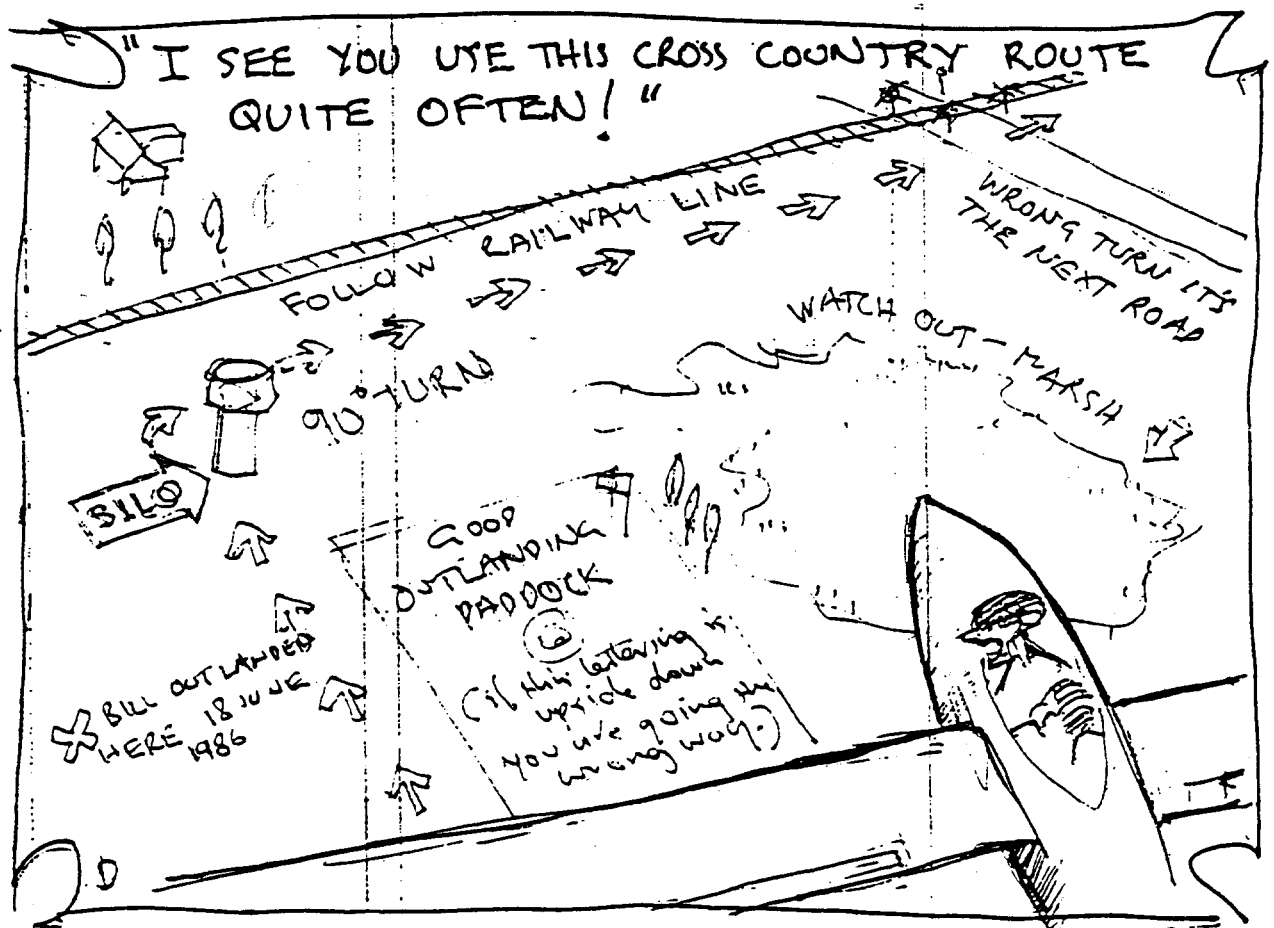 "I SEE YOU USE THIS CROSS COUNTRY ROUTE
QUITE OFTEN!"
FOLLOW RAILWAY LINE
WRONG TURN IT'S
THE NEXT ROAD
WATCH OUT - MARSH
90° TURN
SILO
GOOD
OUTLANDING
PADDOCK
(if this lettering is
upside down
you are going the
wrong way.)
BILL OUTLANDED
HERE 18 JUNE
1986
D